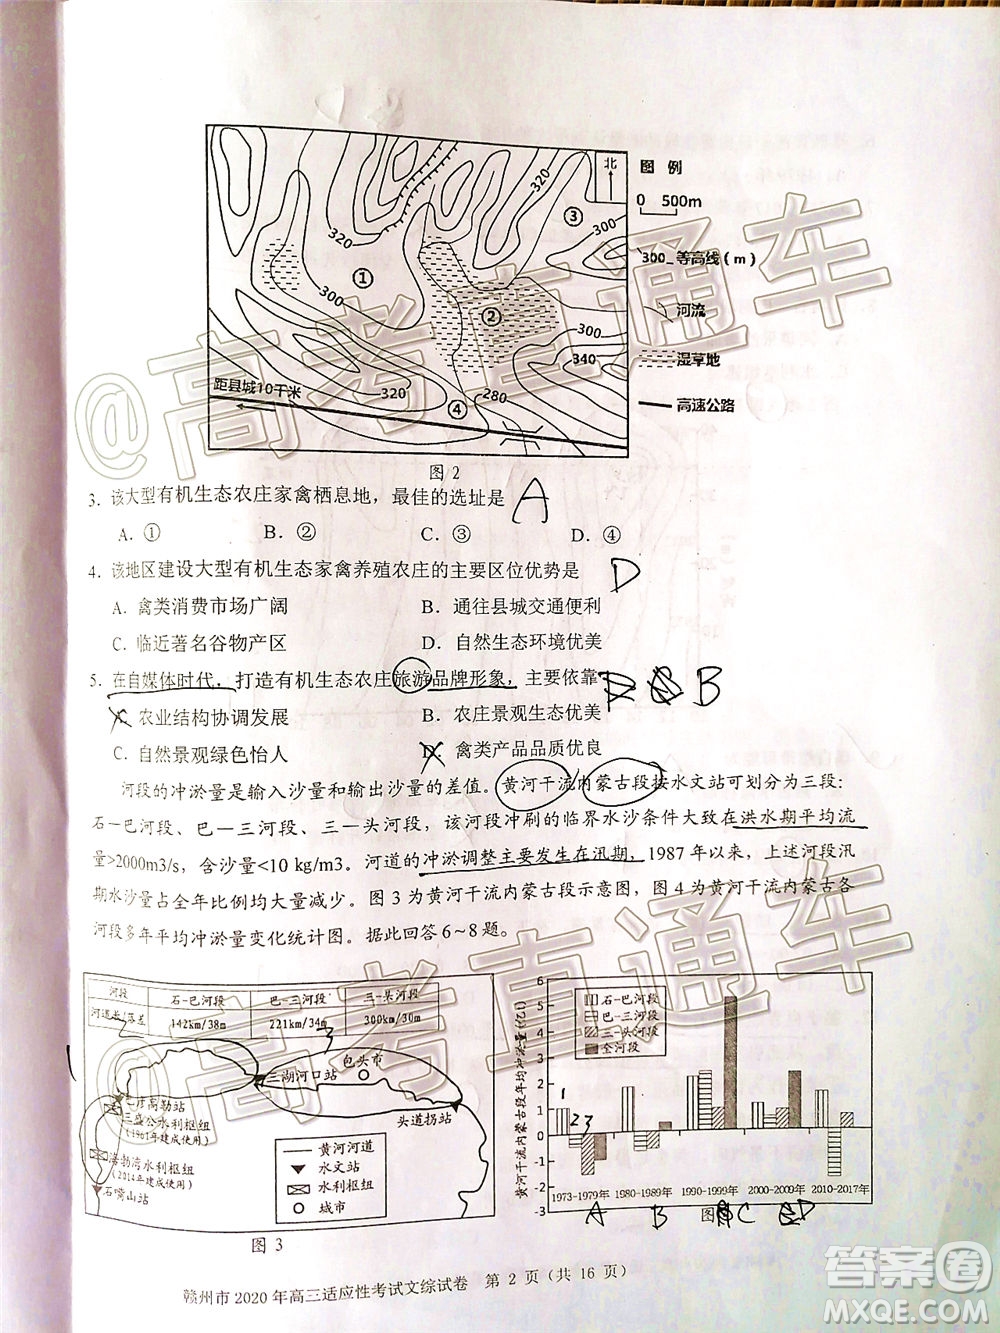 北
图 例
0 500m
300 等高线(m)
河流
湿草地
高速公路
320
320
320
300
300
300
300
340
280
320
①
②
③
④
距县城10千米
图 2
3. 该大型有机生态农庄家禽栖息地，最佳的选址是 A
A. ① B. ② C. ③ D. ④
4. 该地区建设大型有机生态家禽养殖农庄的主要区位优势是 D
A. 禽类消费市场广阔 B. 通往县城交通便利
C. 临近著名谷物产区 D. 自然生态环境优美
5. 在自媒体时代，打造有机生态农庄旅游品牌形象，主要依靠 B
农业结构协调发展 B. 农庄景观生态优美
C. 自然景观绿色怡人 D. 禽类产品品质优良
河段的冲淤量是输入沙量和输出沙量的差值。黄河干流内蒙古段按水文站可划分为三段：
石－巴河段、巴－三河段、三－头河段，该河段冲刷的临界水沙条件大致在洪水期平均流
量>2000m3/s，含沙量<10 kg/m3。河道的冲淤调整主要发生在汛期，1987 年以来，上述河段汛
期水沙量占全年比例均大量减少。图 3 为黄河干流内蒙古段示意图，图 4 为黄河干流内蒙古各
河段多年平均冲淤量变化统计图。据此回答 6～8 题。
河段 石－巴河段 巴－三河段 三－头河段
河道长/落差 142km/38m 221km/34m 300km/30m
包头市
三湖河口站
头道拐站
巴彦高勒站
三盛公水利枢纽
(1961年建成使用)
海勃湾水利枢纽
(2014年建成使用)
石嘴山站
黄河河道
水文站
水利枢纽
城市
图 3
黄河干流内蒙古段年均冲淤量(亿t)
石－巴河段
巴－三河段
三－头河段
全河段
6
5
4
3
2
1
0
-1
-2
-3
1 2 3
1973-1979年 1980-1989年 1990-1999年 2000-2009年 2010-2017年
A B C D
赣州市 2020 年高三适应性考试文综试卷 第 2 页（共 16 页）
@高考直通车
@高考直通车
答案圈
MXQE.COM